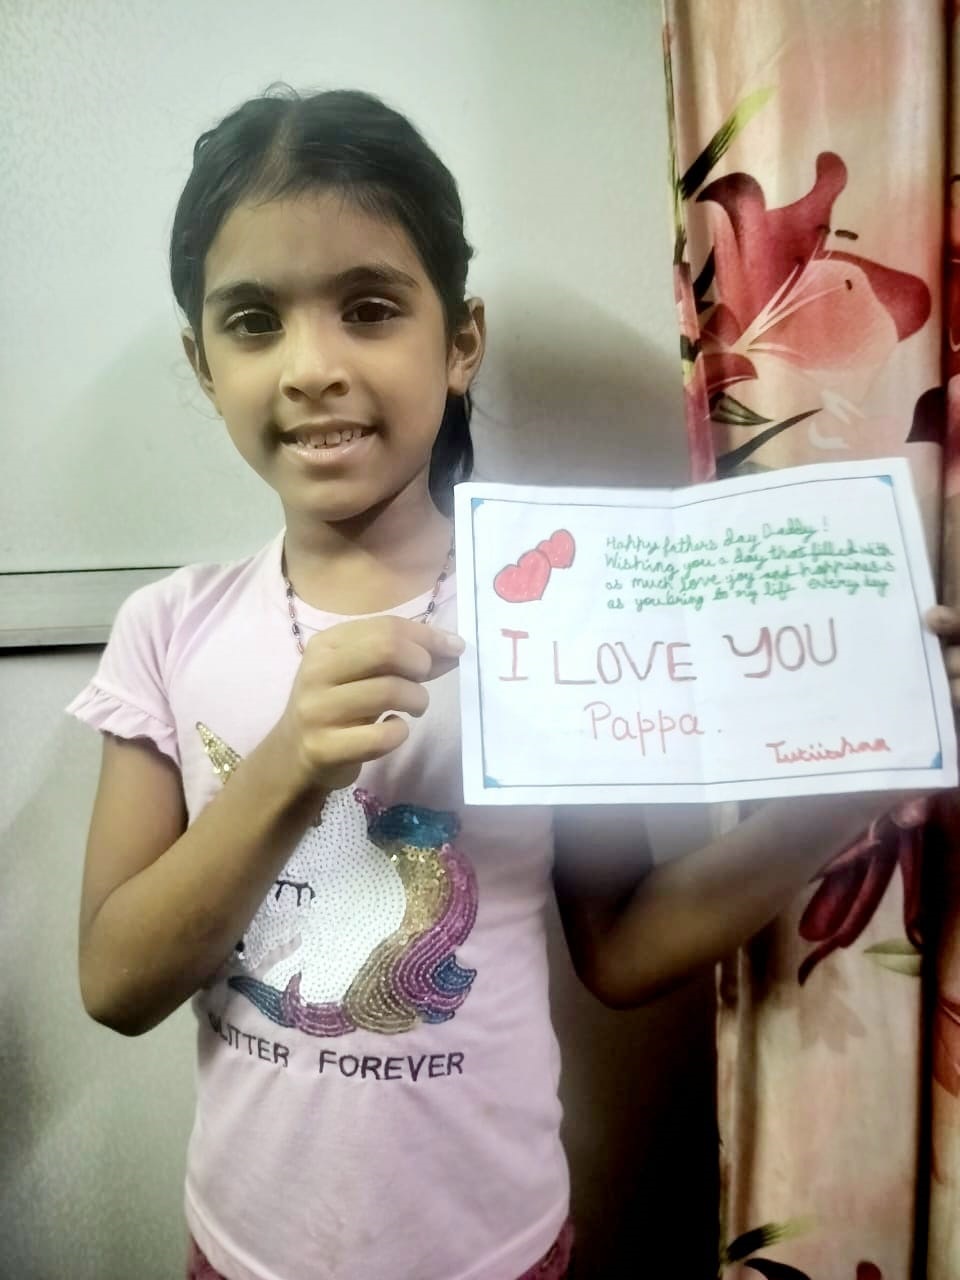 Happy fathers day Daddy!
Wishing you a day that filled with
as much love joy and happiness
as you bring to my life every day
I LOVE YOU
Pappa.
GLITTER FOREVER